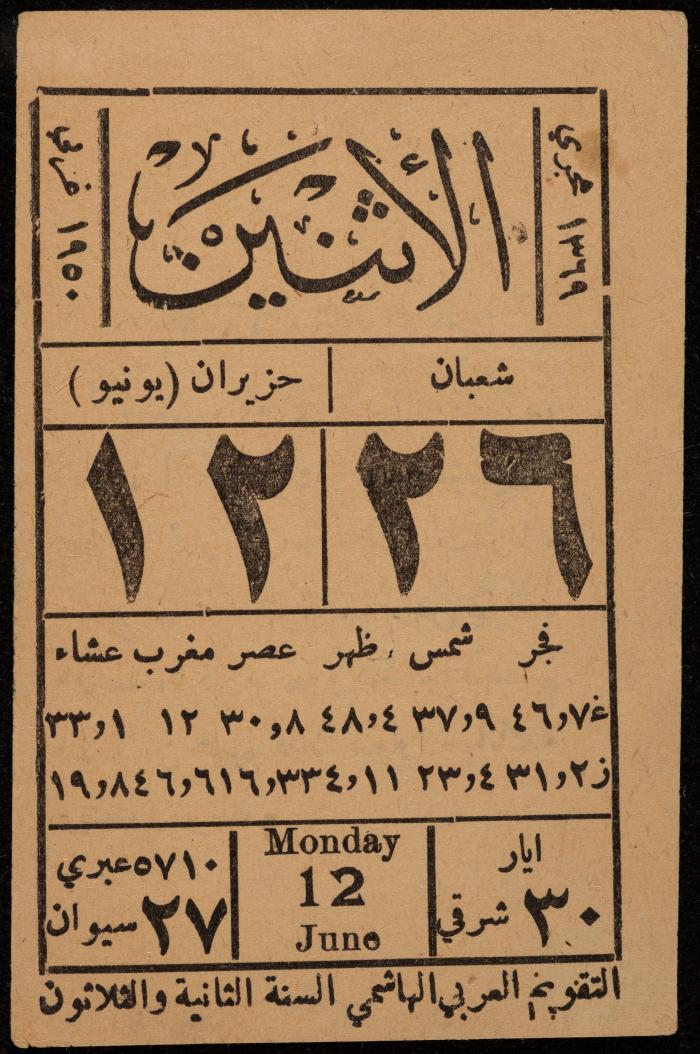 ١٣٦٩ هجري
الأثنين
١٩٥٠ غربي
شعبان
حزيران (يونيو)
٢٦
١٢
فجر شمس ظهر عصر مغرب عشاء
غ ٧و٤٦ ٩و٣٧ ٤و٤٨ ٨و٣٠ ١٢ ١و٣٣
ز ٢و٣١ ٤و٢٣ ١١و٣٤ ٣و١٦ ٦و٤٦ ٨و١٩
ايار
٣٠ شرقي
Monday
12
June
٥٧١٠ عبري
٢٧ سيوان
التقويم العربي الهاشمي السنة الثانية والثلاثون